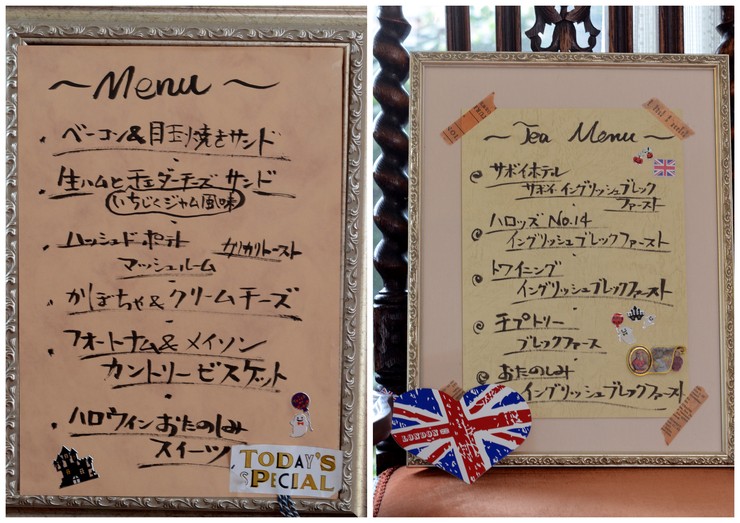 ～Menu～
ベーコン&目玉焼きサンド
生ハムとチェダーチーズサンド
いちじくジャム風味
ハッシュドポテト カリカリトースト
マッシュルーム
かぼちゃ&クリームチーズ
フォートナム&メイソン
カントリービスケット
ハロウィンおたのしみ
スイーツ
TODAY'S
SPECIAL
～Tea Menu～
サボイホテル
サボイイングリッシュブレック
ファースト
ハロッズ No.14
イングリッシュブレックファースト
トワイニング
イングリッシュブレックファースト
チプトリー
ブレックファース
おたのしみ
イングリッシュブレックファースト
LONDON